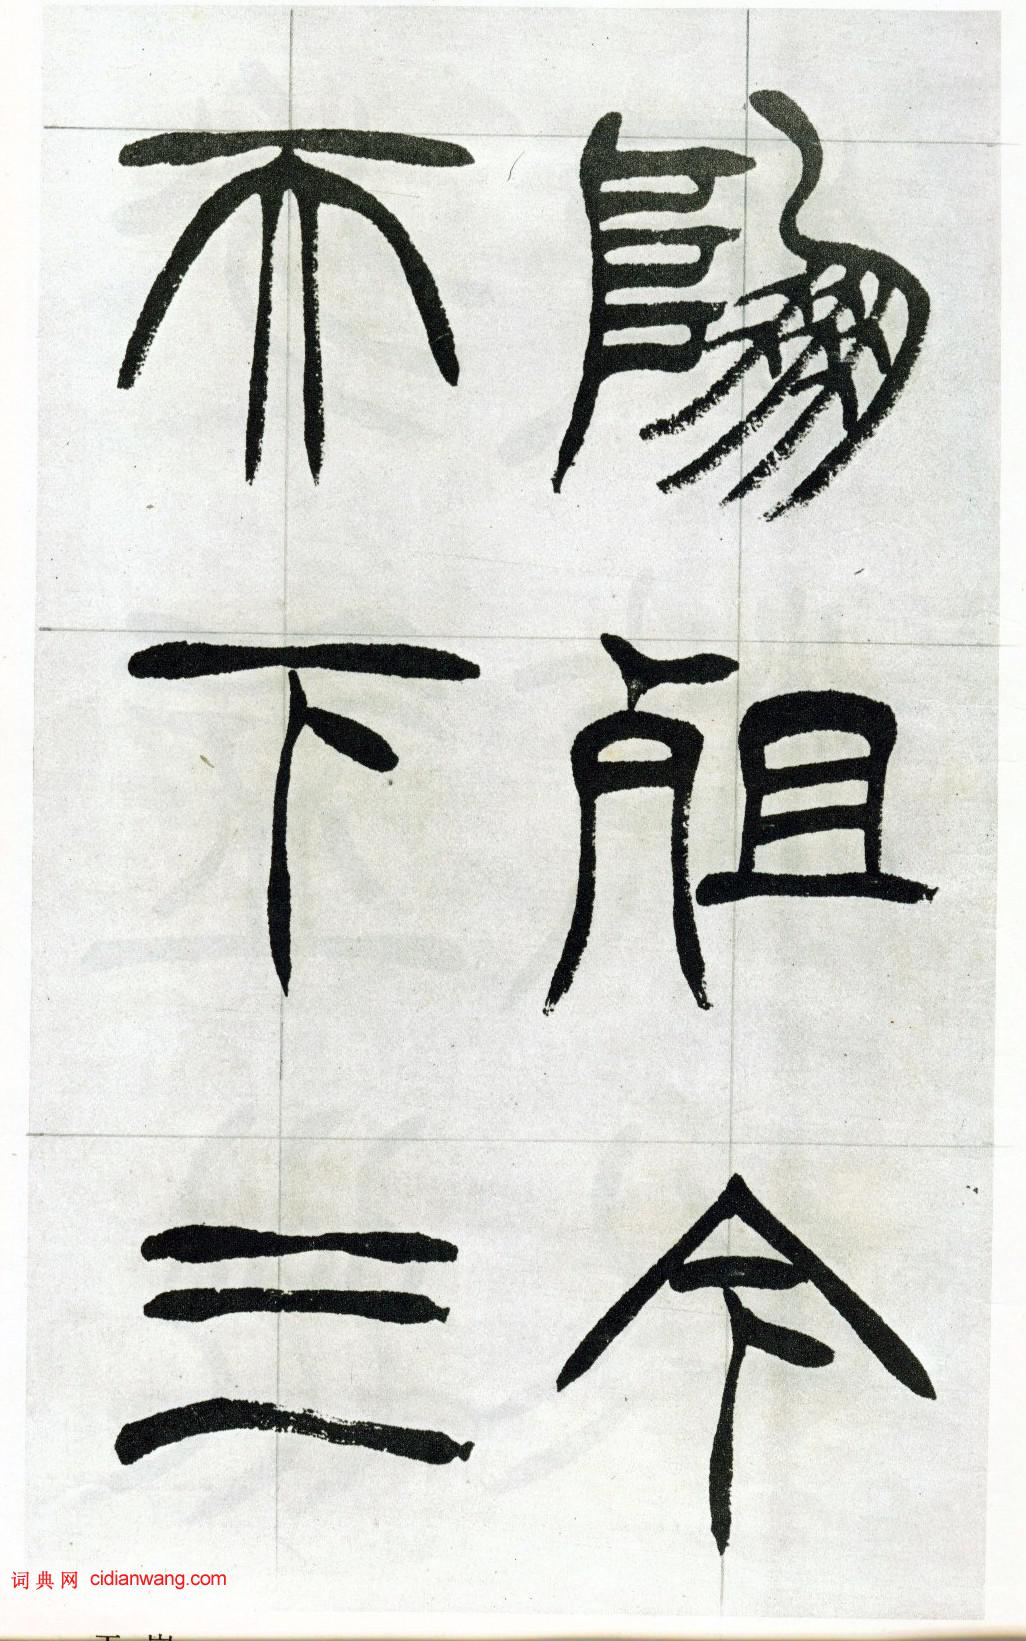 崩殂今
天下三
词典网 cidianwang.com